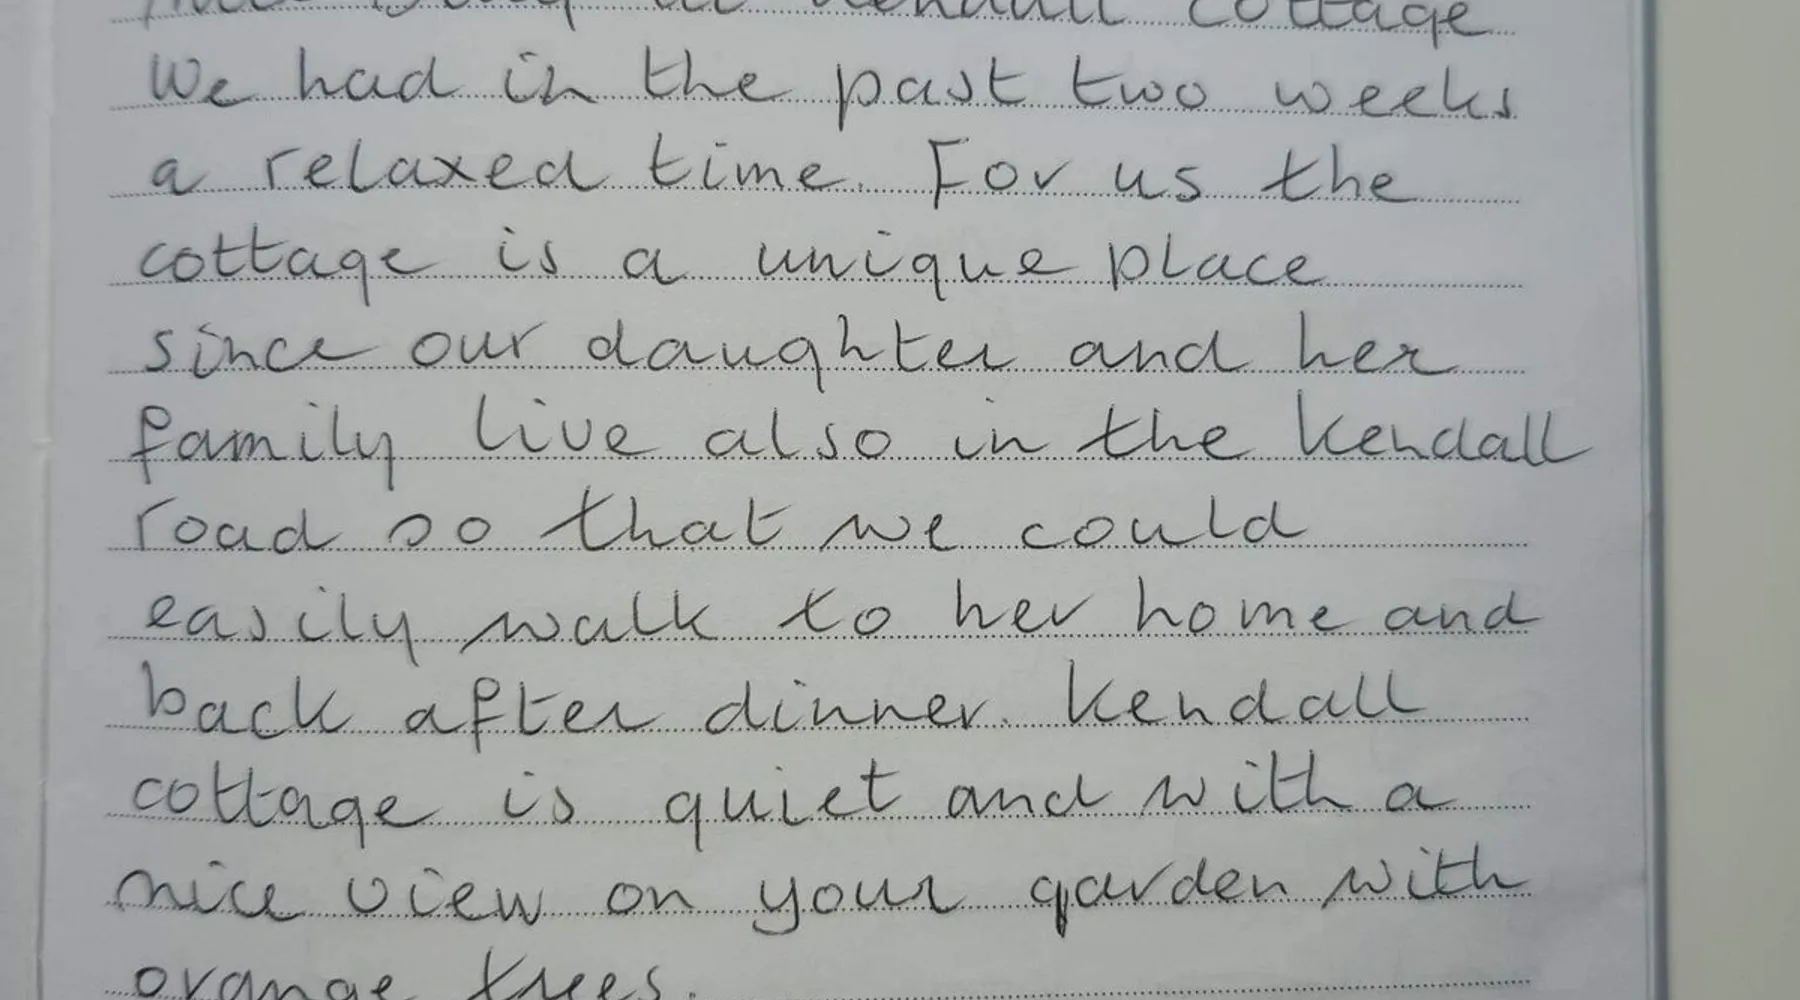 at Kendall cottage
We had in the past two weeks
a relaxed time. For us the
cottage is a unique place
since our daughter and her
family live also in the Kendall
road so that we could
easily walk to her home and
back after dinner. Kendall
cottage is quiet and with a
nice view on your garden with
orange trees.